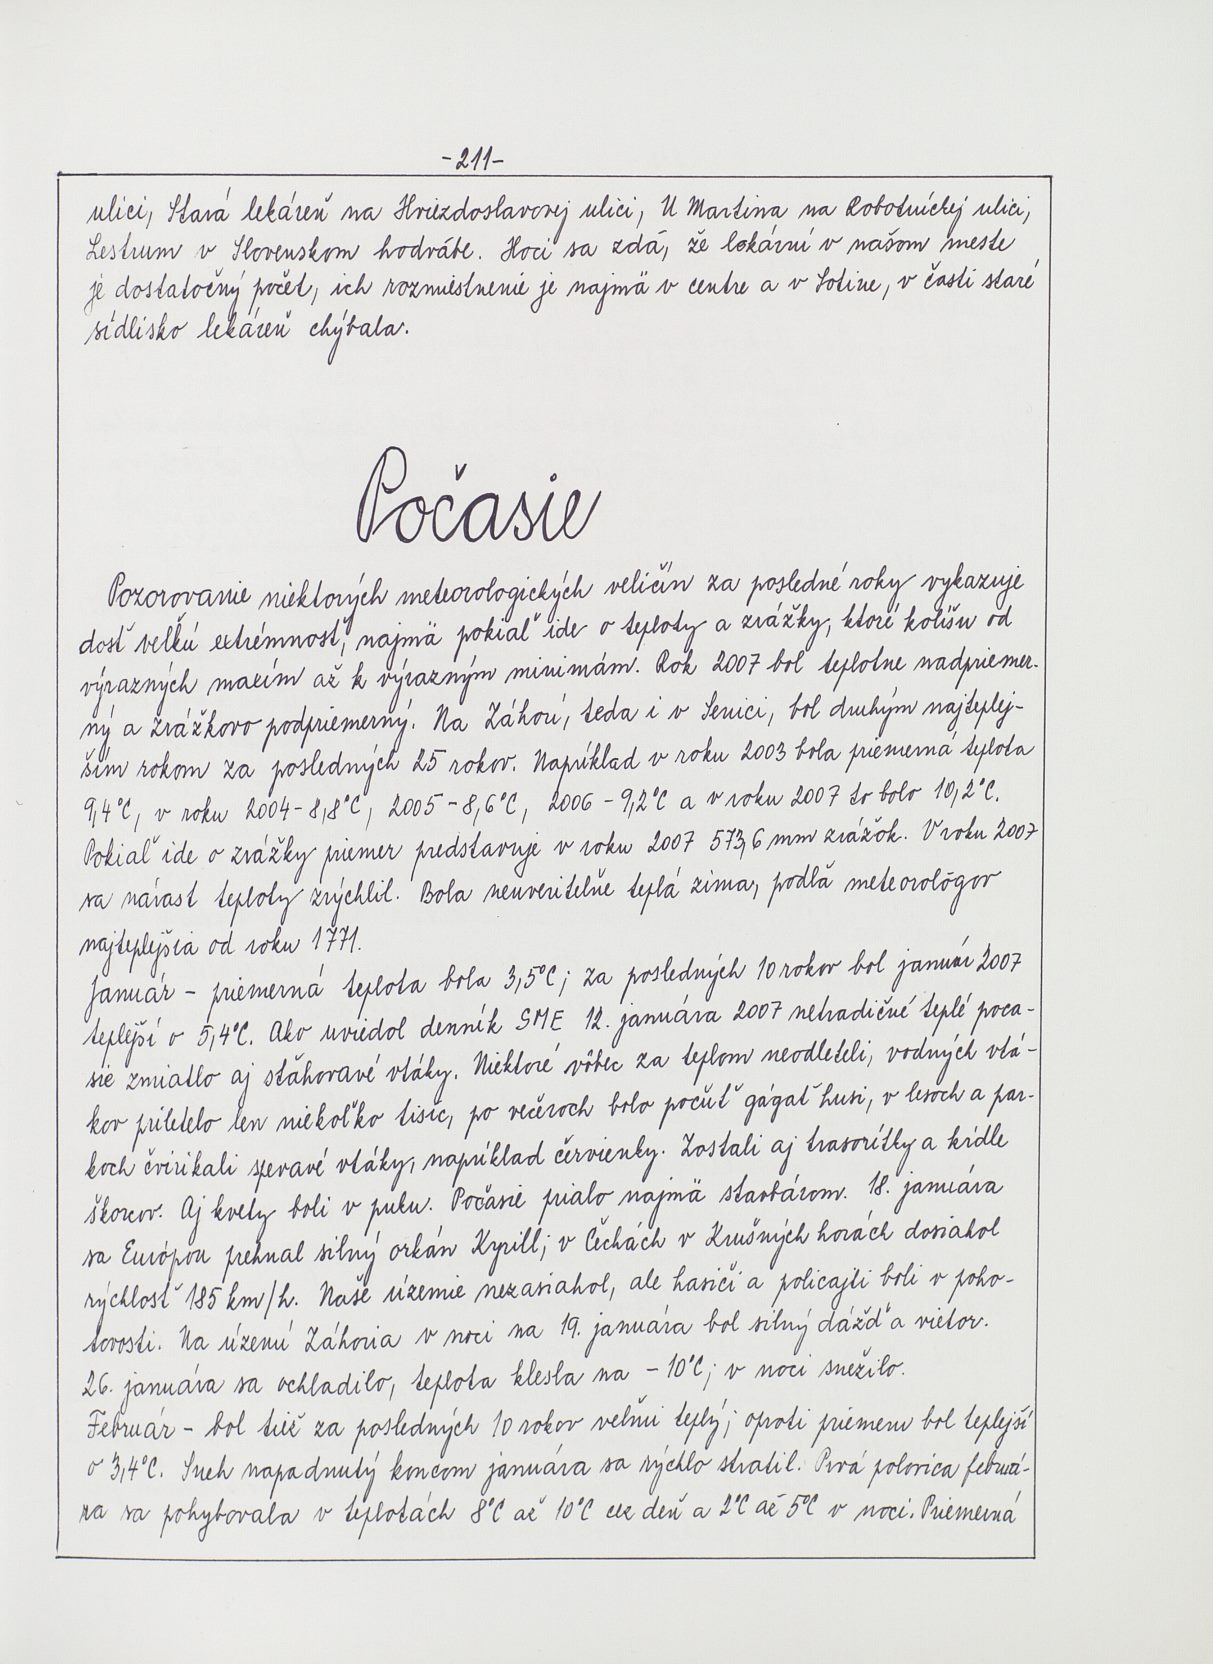 -211-
ulici, Stará lekáreň na Hviezdoslavovej ulici, U Martina na Robotníckej ulici,
Lestrum v Slovenskom hodvábe. Hoci sa zdá, že lekární v našom meste
je dostatočný počet, ich rozmiestnenie je najmä v centre a v Sotine, v časti staré
sídlisko lekáreň chýbala.
Počasie
Pozorovanie niektorých meteorologických veličín za posledné roky vykazuje
dosť veľkú extrémnosť, najmä pokiaľ ide o teploty a zrážky, ktoré kolíšu od
výrazných maxím až k výrazným minimám. Rok 2007 bol teplotne nadpriemer-
ný a zrážkovo podpriemerný. Na Záhorí, teda i v Senici, bol druhým najteplej-
ším rokom za posledných 25 rokov. Napríklad v roku 2003 bola priemerná teplota
9,4°C, v roku 2004-8,8°C, 2005-8,6°C, 2006-9,2°C a v roku 2007 to bolo 10,2°C.
Pokiaľ ide o zrážky priemer predstavuje v roku 2007 573,6 mm zrážok. V roku 2007
sa nárast teploty zrýchlil. Bola neuveriteľne teplá zima, podľa meteorológov
najteplejšia od roku 1771.
Január - priemerná teplota bola 3,5°C; za posledných 10 rokov bol január 2007
teplejší o 5,4°C. Ako uviedol denník SME 12. januára 2007 netradičné teplé poca-
sie zmiatlo aj sťahovavé vtáky. Niektoré vôbec za teplom neodleteli, vodných vtá-
kov priletelo len niekoľko tisíc, po večeroch bolo počuť gágať husi, v lesoch a par-
koch čvirikali spevavé vtáky, napríklad červienky. Zostali aj trasorítky a kŕdle
škorcov. Aj kvety boli v puku. Počasie prialo najmä stavbárom. 18. januára
sa Európou prehnal silný orkán Kyrill; v Čechách v Krušných horách dosiahol
rýchlosť 185 km/h. Naše územie nezasiahol, ale hasiči a policajti boli v poho-
tovosti. Na území Záhoria v noci na 19. januára bol silný dážď a vietor.
26. januára sa ochladilo, teplota klesla na -10°C; v noci snežilo.
Február - bol tiež za posledných 10 rokov veľmi teplý; oproti priemeru bol teplejší
o 3,4°C. Sneh napadnutý koncom januára sa rýchlo stratil. Prvá polovica februá-
ra sa pohybovala v teplotách 8°C až 10°C cez deň a 2°C až 5°C v noci. Priemerná